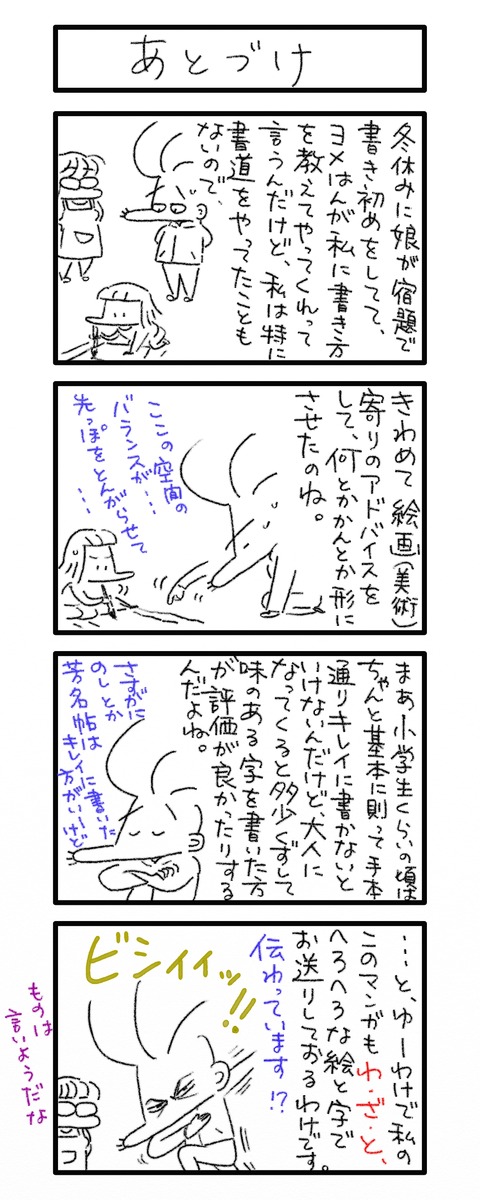 あとづけ
冬休みに娘が宿題で
書き初めをしてて、
ヨメはんが私に書き方
を教えてやってくれって
言うんだけど、私は特に
書道をやってたことも
ないので、
きわめて絵画(美術)
寄りのアドバイスを
して、何とかかんとか形に
させたのね。
ここの空間の
バランスが…
先っぽをとんがらせて
…
まあ小学生くらいの頃は
ちゃんと基本に則って手本
通りキレイに書かないと
いけないんだけど、大人に
なってくると多少くずして
味のある字を書いた方
が評価が良かったりする
んだよね。
さすがに
のしとか
芳名帖は
キレイに書いた
方がいーけど
…と、ゆーわけで私の
このマンガもわ・ざ・と、
へろへろな絵と字で
お送りしておるわけです。
伝わっています!?
ビシィィッ!!
ものは
言いようだな